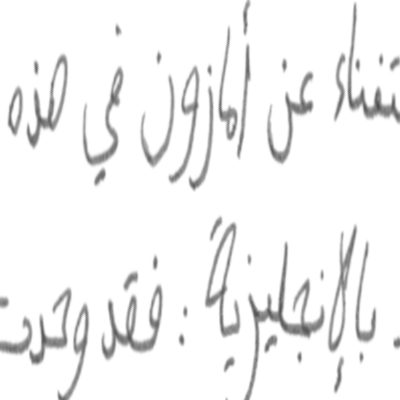 تغناء عن أمازون في هذه
. بالإنجليزية : فقد وحدت